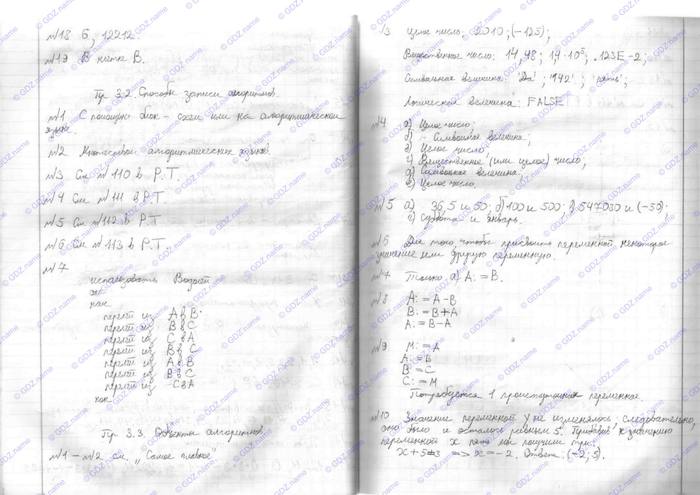 №18 6, 12212
№19 В нитка В.
Гр 3.2 Способы записи алгоритмов.
№1 С помощью блок-схем или на алгоритмическом языке.
№2 Множеством алгоритмических языков.
№3 См №110 в Р.Т.
№4 См №111 в Р.Т.
№5 См №112 в Р.Т.
№6 См №113 в Р.Т.
№7
использовать
нач
перелей из A в B
перелей из B в C
перелей из C в A
перелей из B в C
перелей из A в B
перелей из B в C
перелей из C в A
кон
Гр 3.3 Объекты алгоритмов.
№1-№2 см. "Самое главное"
3 Целое число: 2010; (-125);
Вещественное число: 14,48; 1,4·10⁵; .123E-2;
Символьная величина: 'Да'; '1942'; 'пять';
Логическая величина: FALSE
№4 а) Целое число;
б) Символьная величина;
в) Целое число;
г) Вещественное (или целое) число;
д) Символьная величина;
е) Целое число.
№5 а) 36,5 и 50; б) 100 и 500; в) 547030 и (-50)
г) Суббота и январь.
№6 Для того, чтобы присвоить переменной некоторое
значение или другую переменную.
№7 Только а) A:=B.
№8 A:=A-B
B:=B+A
A:=B-A
№9 M:=A
A:=B
B:=C
C:=M
Потребуется 1 промежуточная переменная
№10 Значение переменной y не изменялось, следовательно,
оно было и осталось равным 5. Прибавив к значению
переменной x пять мы получим три:
x+5=3 => x=-2. Ответ: (-2; 5).
© GDZ.name